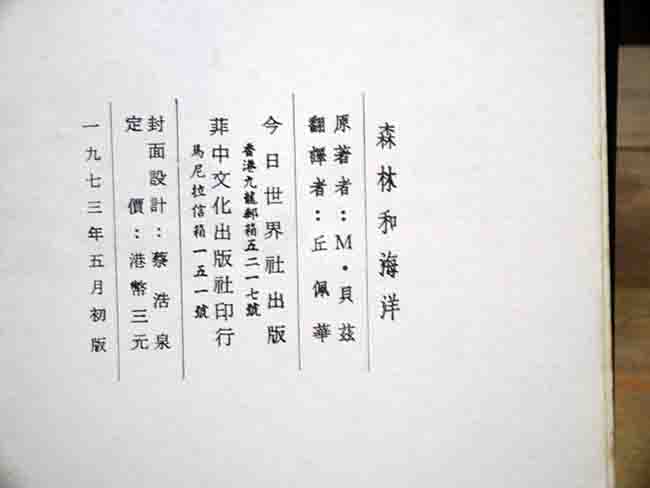 森林和海洋
原著者：M·貝茲
翻譯者：丘佩華
今日世界社出版
香港九龍郵箱五二一七號
菲中文化出版社印行
馬尼拉信箱一五一號
封面設計：蔡浩泉
定價：港幣三元
一九七三年五月初版